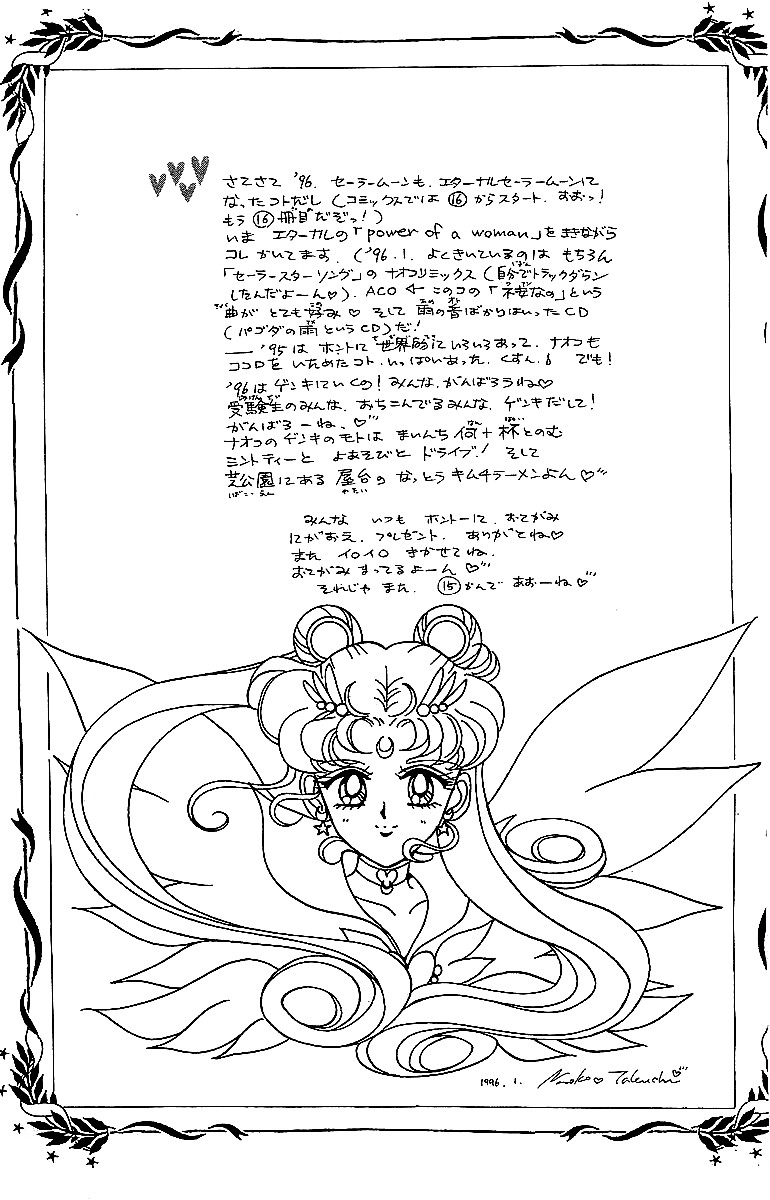 さてさて '96. セーラームーンも. エターナルセーラームーンに
なったコトだし (コミックスでは ⑯ からスタート. おおっ!
もう ⑯ 冊目だぞっ!)
いま エターナルの「power of a woman」をききながら
コレ かいてます. ('96.1. よくきいているのは もちろん
「セーラースターソング」の ナオコリミックス (自分でトラックダウン
したんだよーん♡). ACO ← このコの「不安なの」という
曲が とても好み♡ そして 雨の音ばかりはいった CD
(パゴダの雨というCD) だ!
— '95は ホントに 世界的に いろいろあって. ナオコも
ココロを いためたコト. いっぱいあった. くすん. でも!
'96は ゲンキにいくの! みんな. がんばろうね♡
受験生のみんな. おちこんでるみんな. ゲンキだして!
がんばろーね. ♡
ナオコの ゲンキのモトは まいんち 何十杯とのむ
ミントティーと よあそびと ドライブ! そして
芝公園にある 屋台の なっとうキムチラーメンよん♡
みんな いつも ホントーに. おてがみ
にがおえ. プレゼント. ありがとね♡
また イロイロ きかせてね.
おてがみ まってるよーん♡
それじゃ また. ⑮かんで あおーね♡
1996. 1. Naoko♡Takeuchi♡